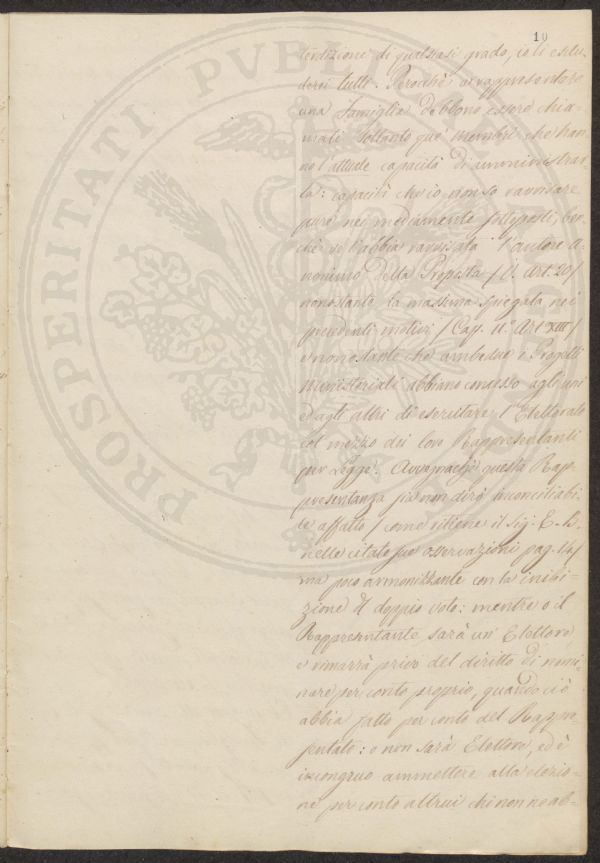 10
terdizione di qualsiasi grado, io li esclu-
derei tutti. Perocchè a rappresentare
una Famiglia debbono essere chia-
mati soltanto que' membri che han-
no l'attuale capacità di amministrar-
la: capacità che io non so ravvisare
pure nei mediamente sottoposti, ben-
chè ve l'abbia ravvisata l'autore A-
nonimo della Proposta /V. Art. 20/
nonostante la massima spiegata nei
precedenti motivi /Cap. II.° Art. XIII/
e nonostante che ambedue i Progetti
Ministeriali abbiano concesso agli uni
ed agli altri di esercitare l'Elettorato
col mezzo dei loro Rappresentanti
per Legge. Avvegnachè questa Rap-
presentanza sia non dirò inconciliabi-
le affatto /come ritiene il Sig. E. B.
nelle citate sue osservazioni pag. 14/
ma poco armonizzante con la inibi-
zione del doppio voto: mentre o il
Rappresentante sarà un Elettore,
e rimarrà privo del diritto di nomi-
nare per conto proprio, quando ciò
abbia fatto per conto del Rappre-
sentato: o non sarà Elettore, ed è
incongruo ammettere alla elezio-
ne per conto altrui chi non ne ab-
PROSPERITATI PUBLICAE AUGENDAE